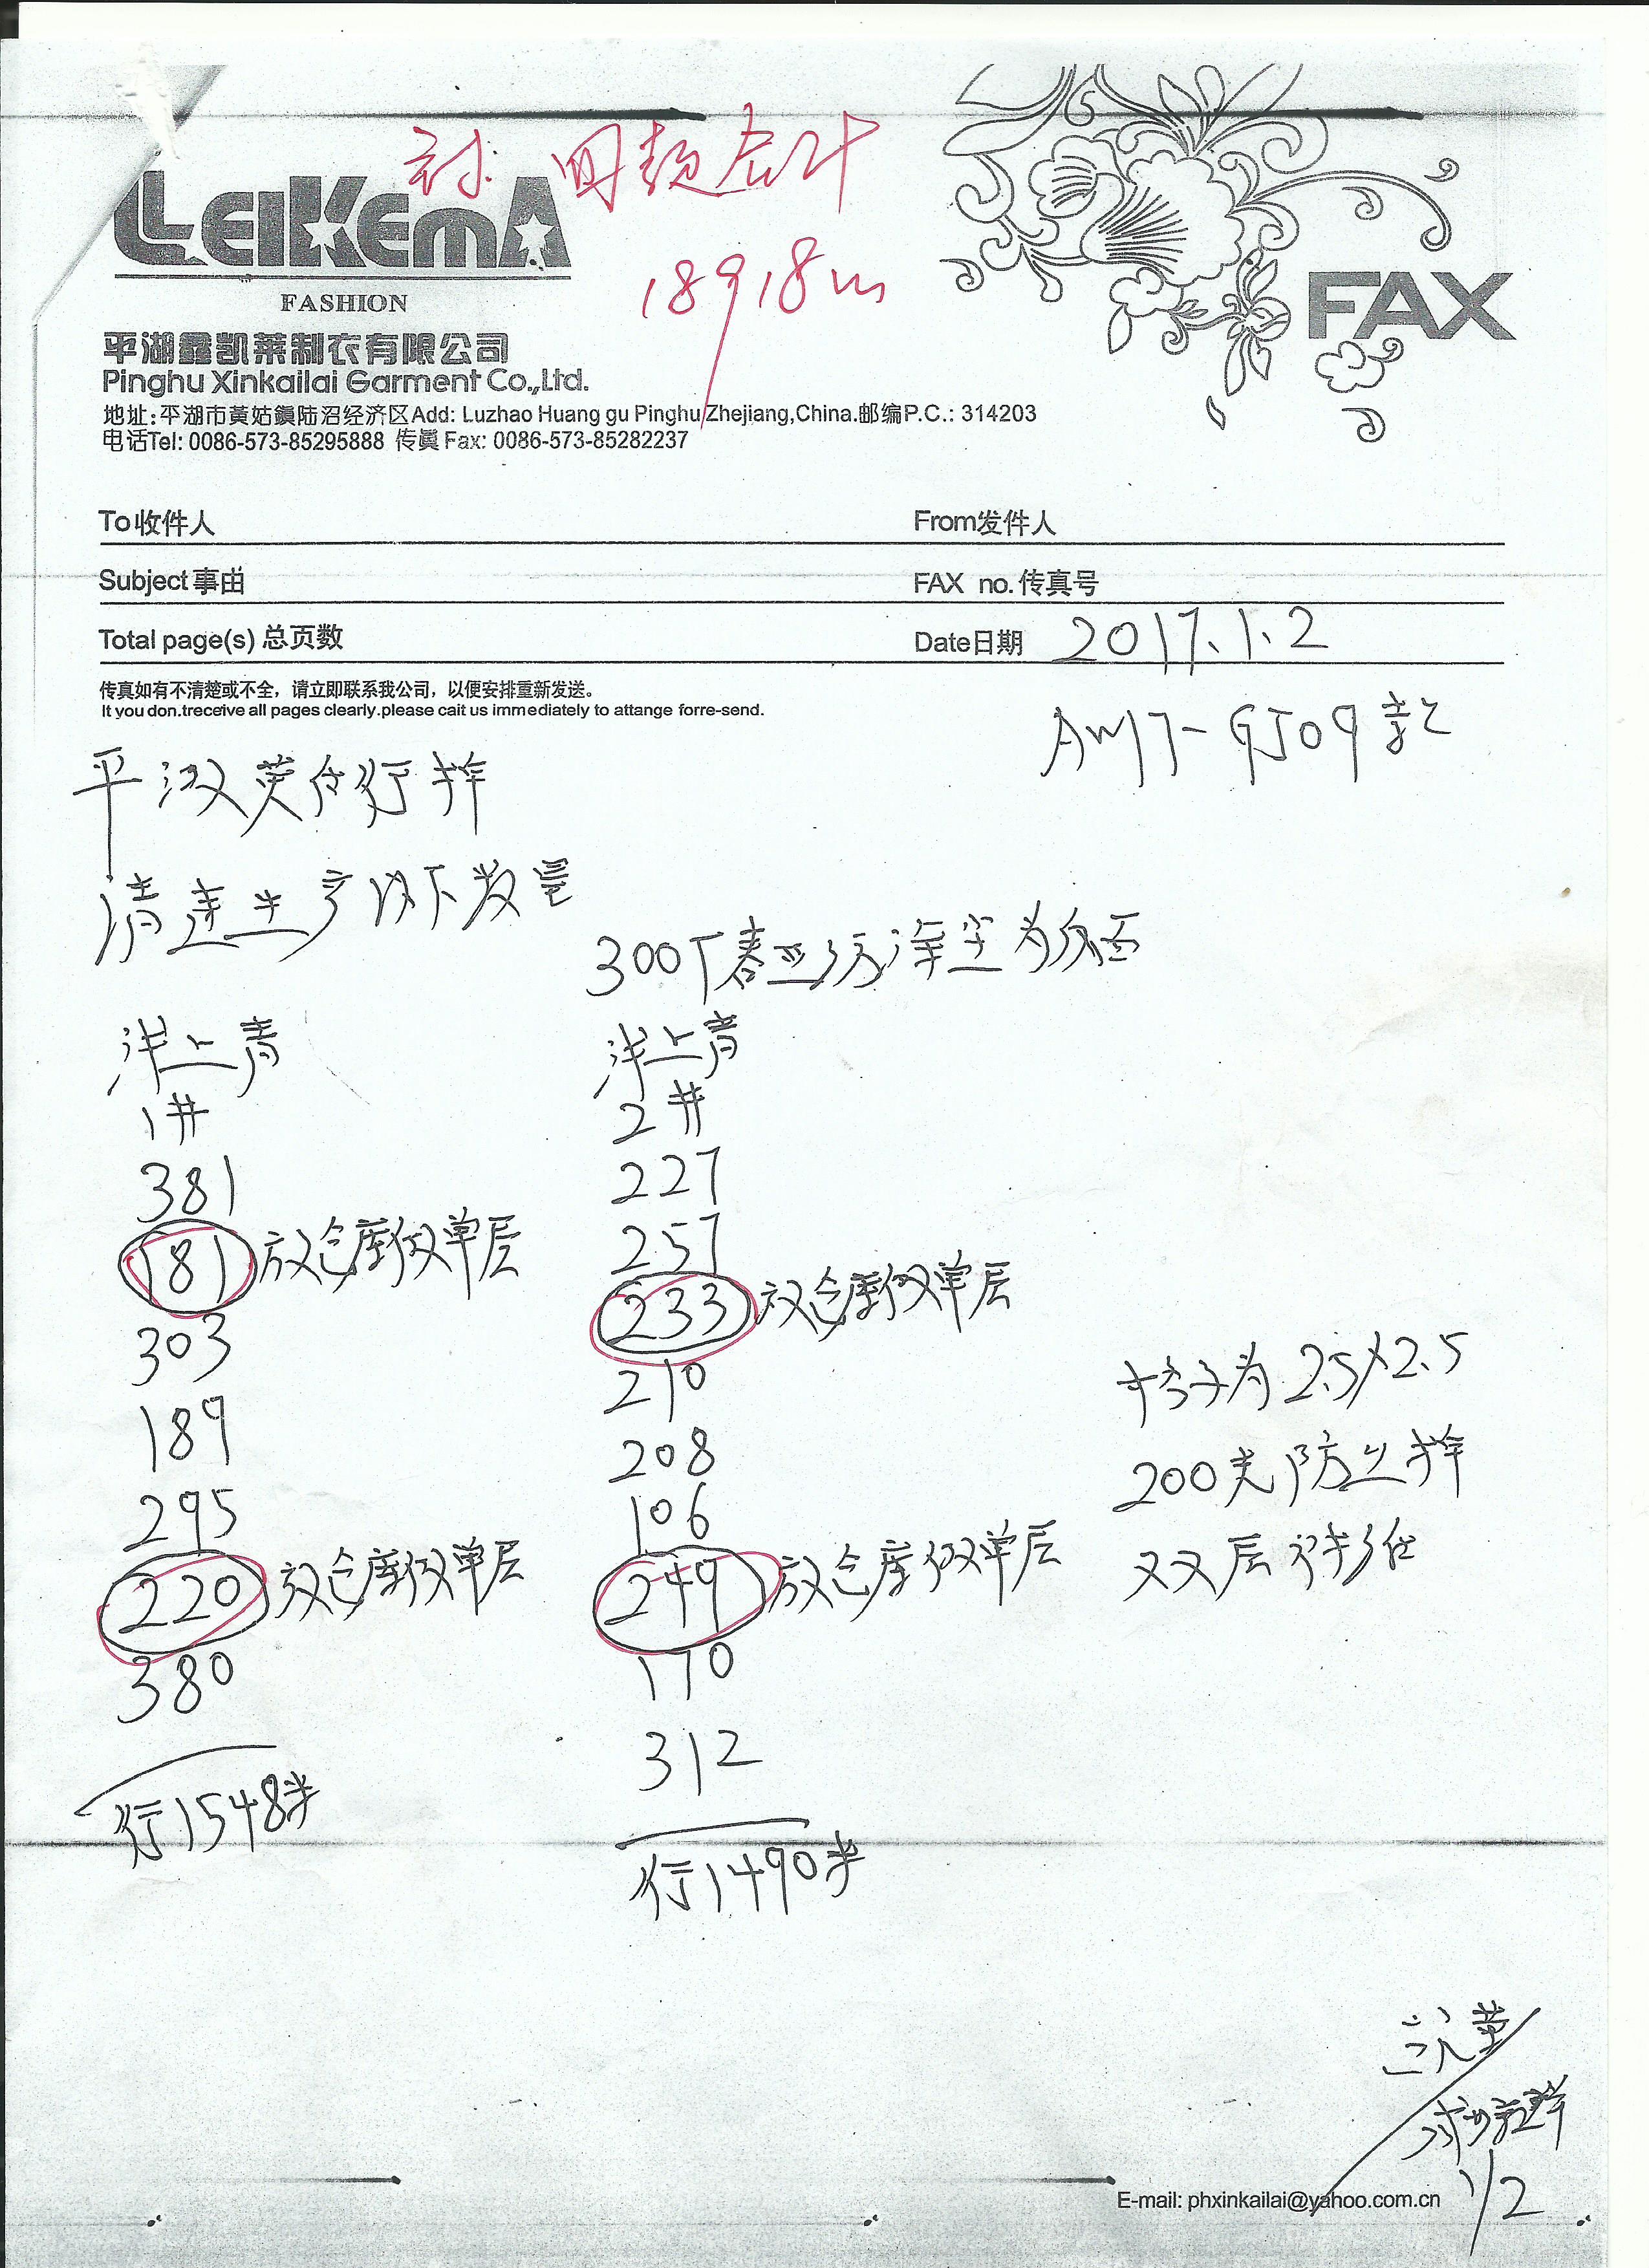 18918m
LEIKEMA
FASHION
FAX
平湖鑫凯莱制衣有限公司
Pinghu Xinkailai Garment Co.,Ltd.
地址:平湖市黄姑鎮陆沼经济区Add: Luzhao Huang gu Pinghu Zhejiang,China.邮编P.C.: 314203
电话Tel: 0086-573-85295888 传眞 Fax: 0086-573-85282237
To收件人 From发件人
Subject事由 FAX no.传真号
Total page(s)总页数 Date日期 2017.1.2
传真如有不清楚或不全，请立即联系我公司，以便安排重新发送。
It you don.treceive all pages clearly.please cait us immediately to attange forre-send.
AW17-GJ09款
请速生产以下数量
300T春亚纺
洋上青 洋上青
1# 2#
381 227
181 放仓库做单层 257
303 233 放仓库做单层
189 210
295 208
220 放仓库做单层 106
380 249 放仓库做单层
行1548米 170
312
行1490米
格子为2.5X2.5
200克防丝棉
双层
E-mail: phxinkailai@yahoo.com.cn
1/2